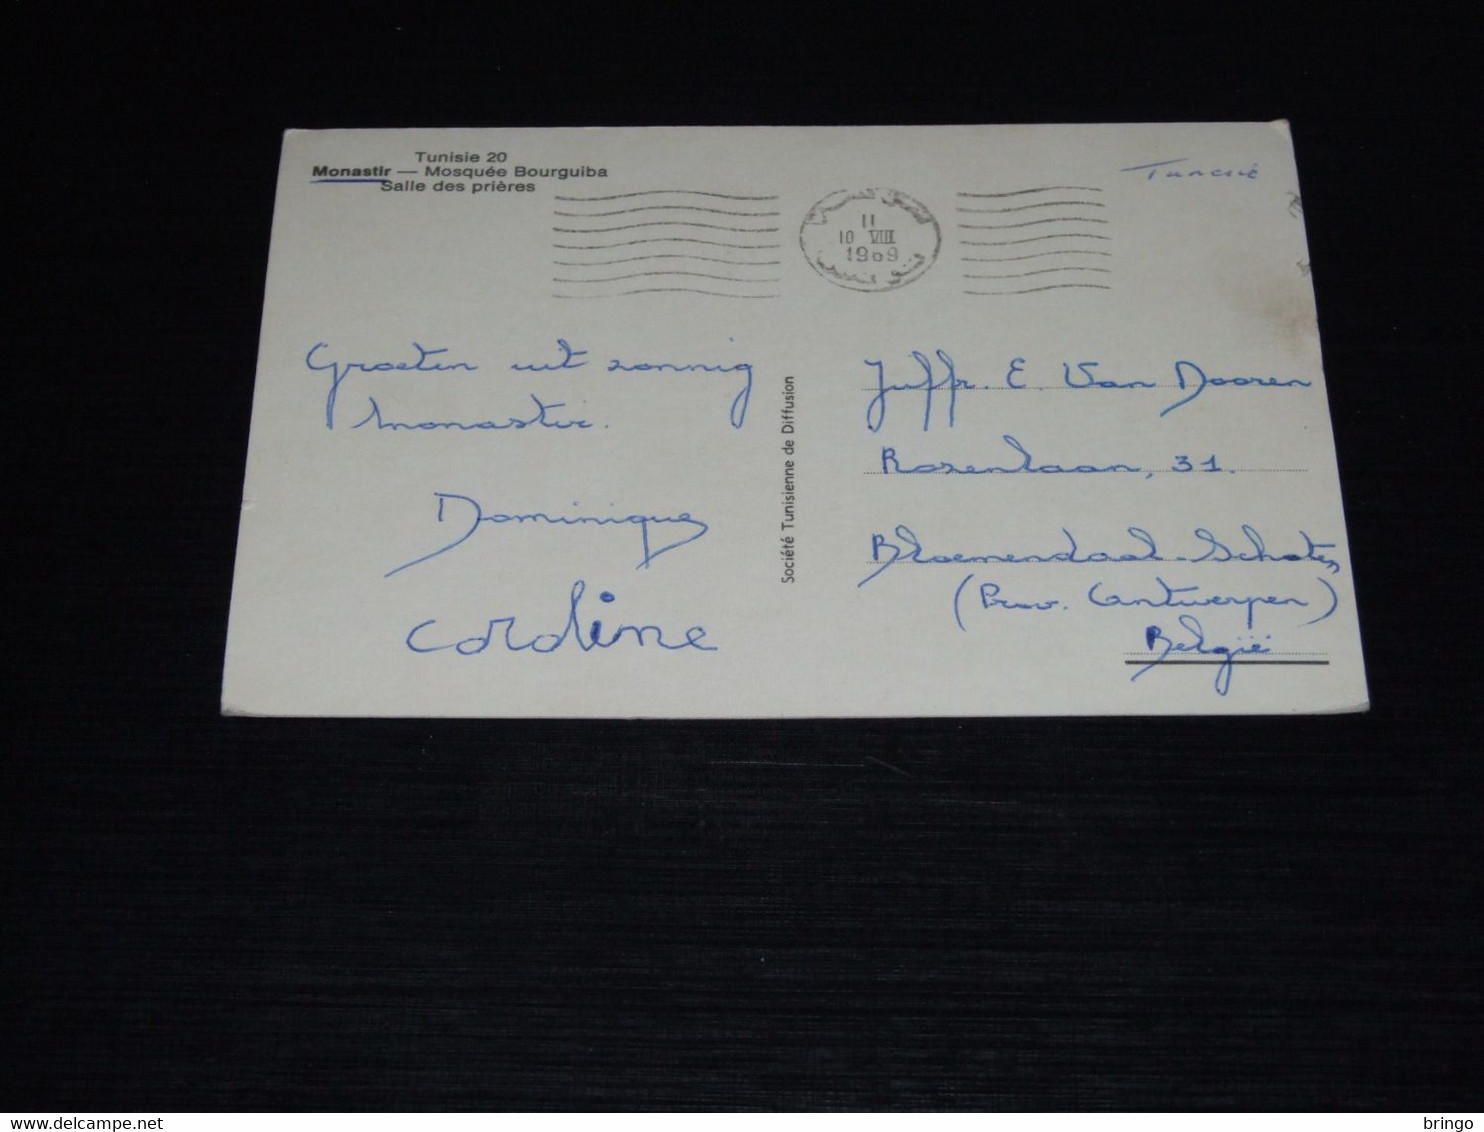 Tunisie 20
Monastir — Mosquée Bourguiba
Salle des prières
Tunesië
11
10 VIII
1969
Groeten uit zonnig
Monastir.
Dominique
Caroline
Société Tunisienne de Diffusion
Juffr. E. Van Dooren
Rozenlaan, 31.
Bloemendaal-Schoten
(Prov. Antwerpen)
België
delcampe.net
bringo